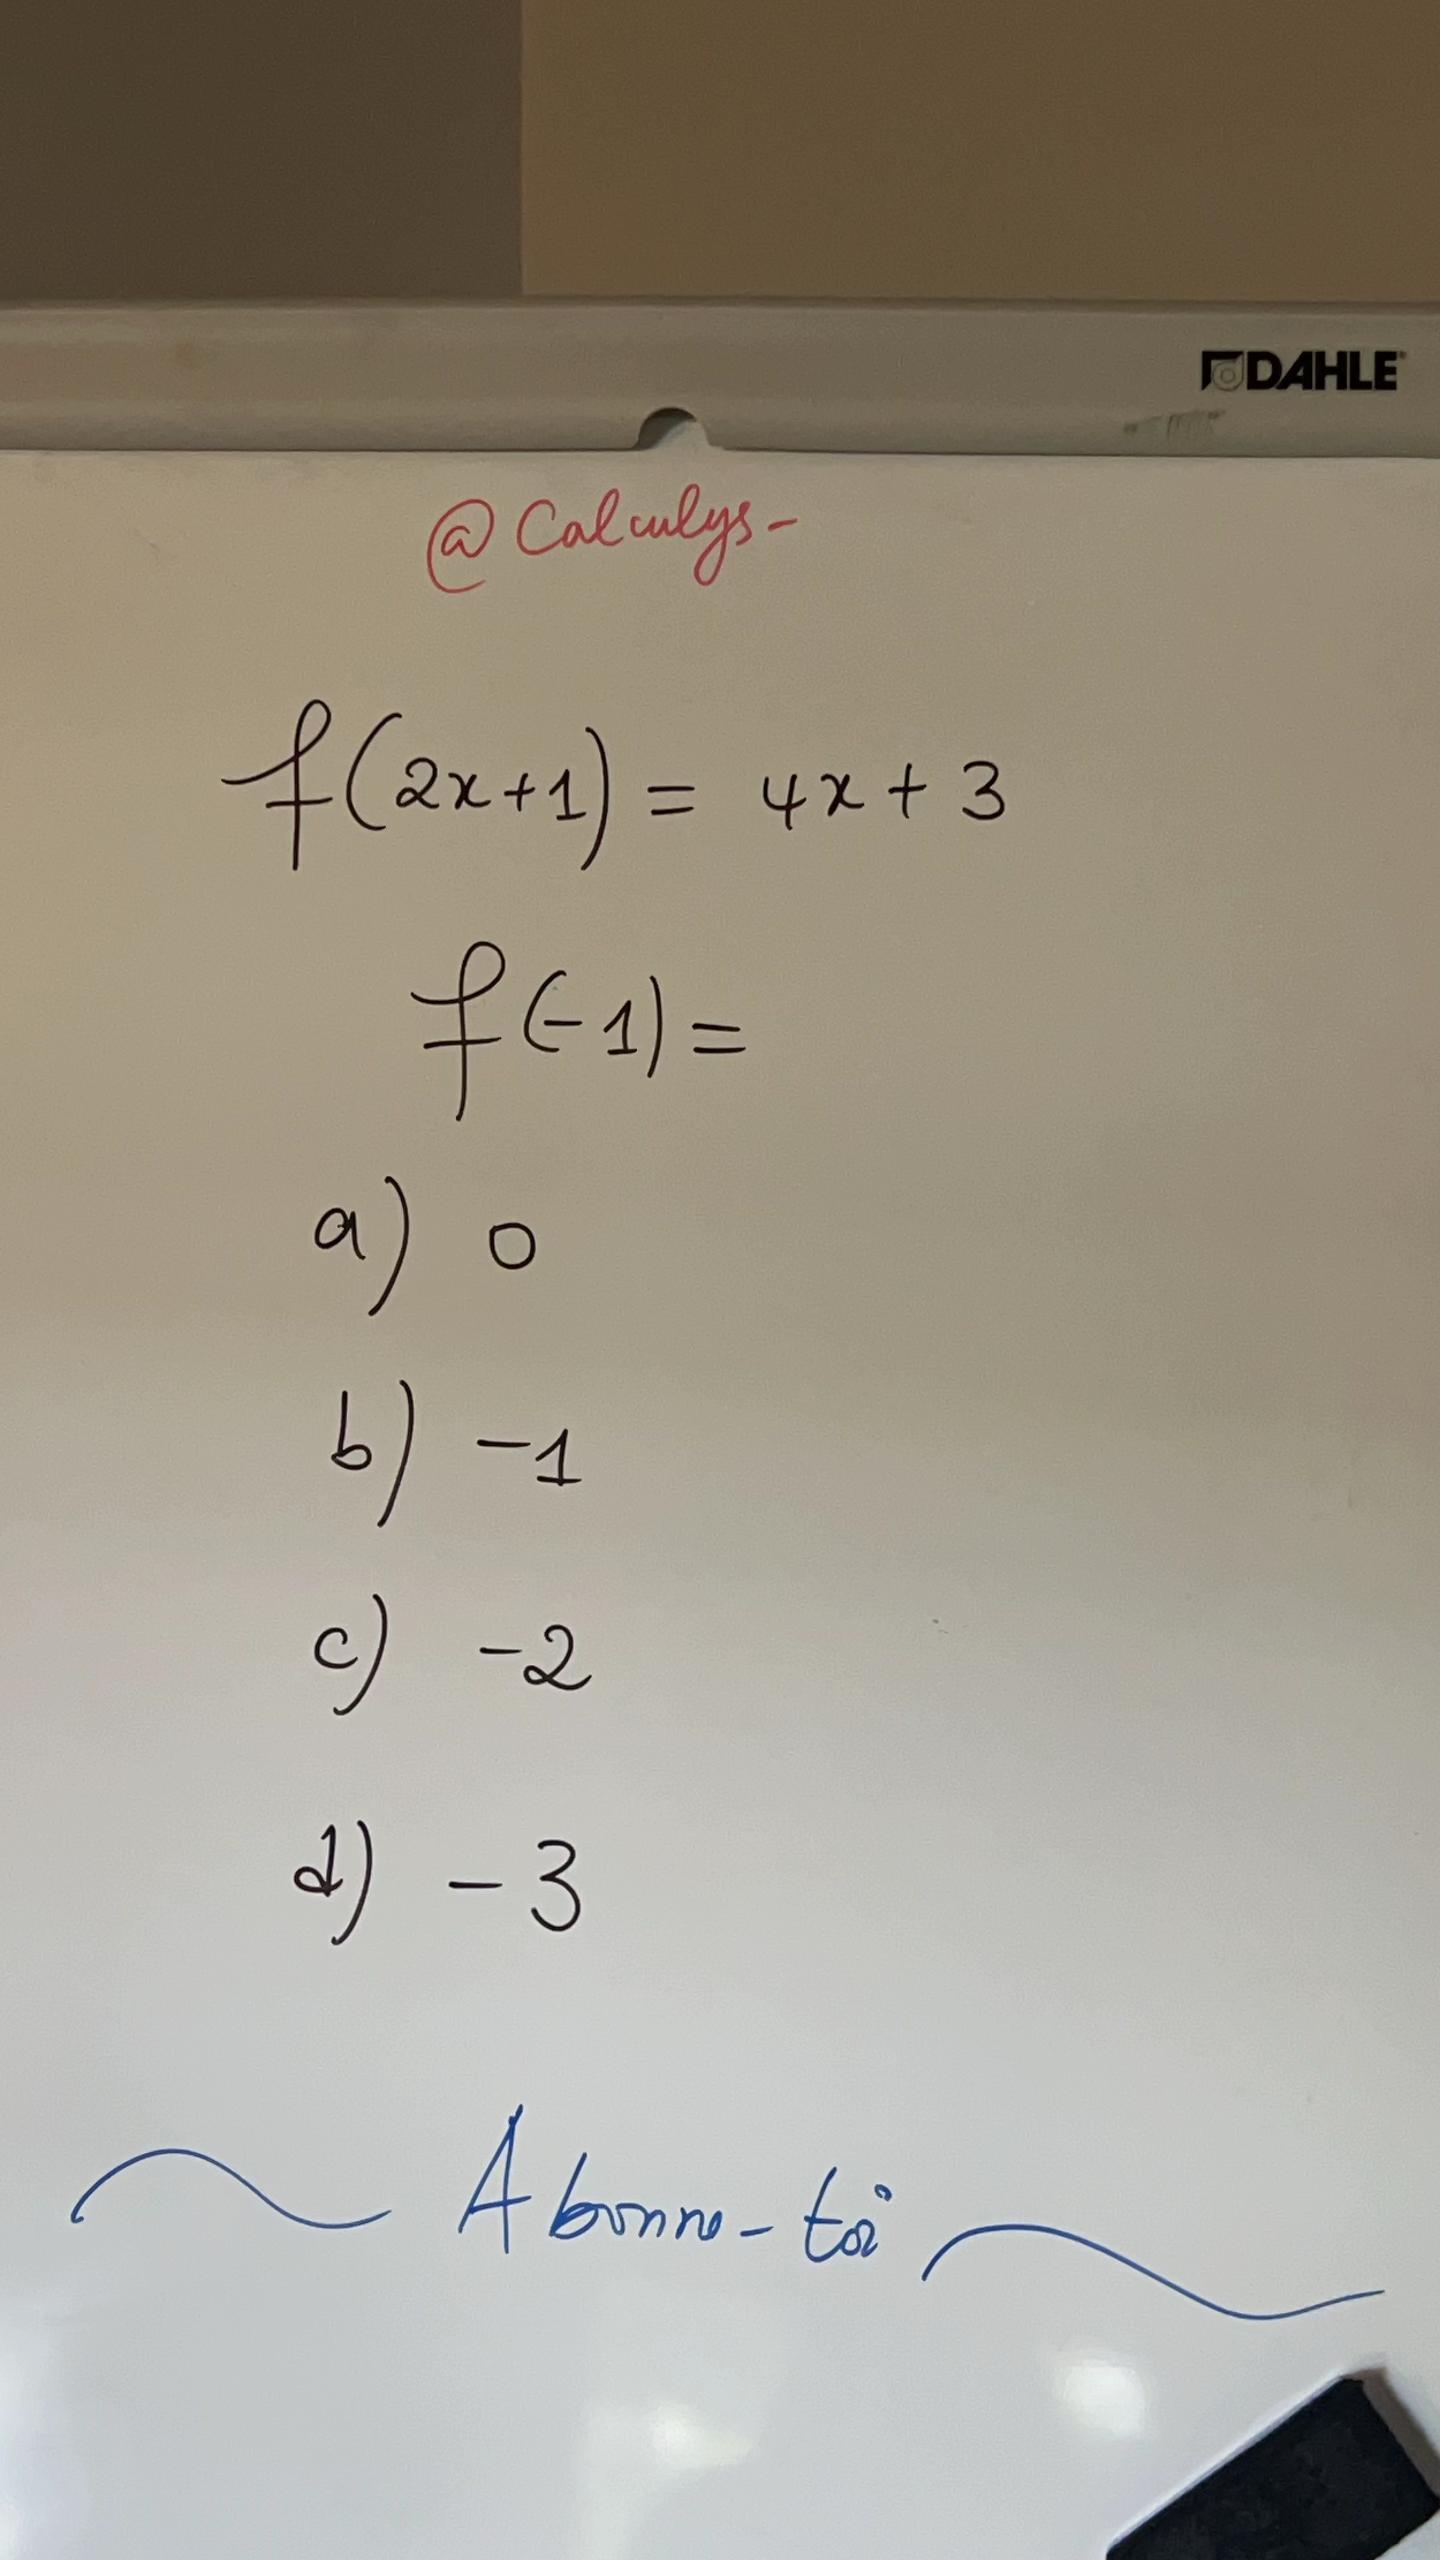 DAHLE
@Calculys-
f(2x+1) = 4x+3
f(-1) =
a) 0
b) -1
c) -2
d) -3
Abonne-toi